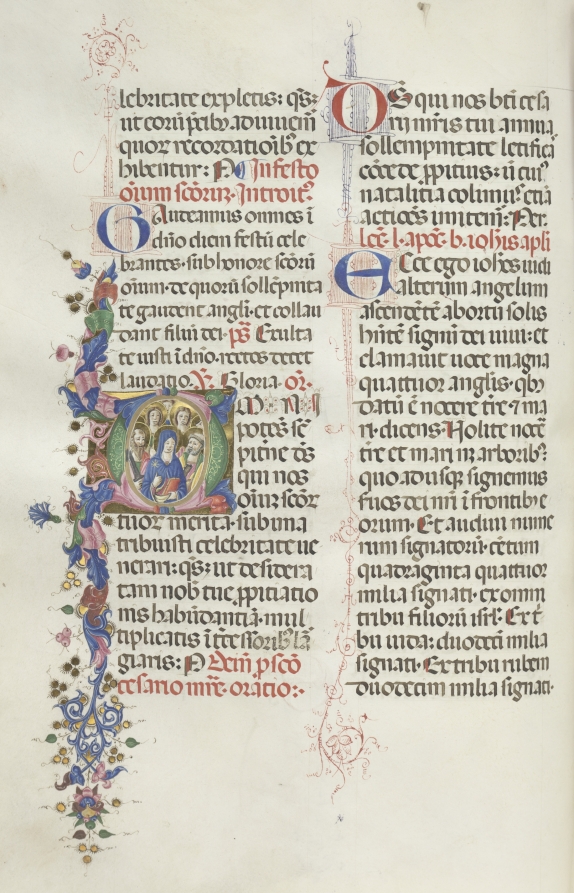 lebritate expletis: q̄s:
ut eoꝝ p̄cib; adiuuem̄
quoꝝ recordatioīb; ex
hibentur: P In festo
oīum sc̄oꝝ. Introit9
Gaudeamus omnes ī
dn̄o diem festū cele
brantes. sub honore sc̄oꝝ
oīum. de quoꝝ sollēpnita
te gaudent angli. et collau
dant filiū dei. ps̄ Exulta
te iusti ī dn̄o. rectos decet
laudatio. V̄. Gloria. or̄.
OMNS
potēs sē
pitne ds̄
qui nos
oīuꝫ sc̄oꝝ
tuoꝝ merita. sub una
tribuisti celebritate ue
nerari: q̄s: ut desidera
tam nob̄ tue ꝓpitiatio
nis habūdantiā. mul
tiplicatis ītcessorib; lā
giaris: P Deīn ꝓ scō
cesario mr̄e. oratio:.
DS̄ qui nos bt̄i cesa
rij mr̄is tui annua
sollempnitate letificas
cōcede ꝓpitius: ut cui9
natalitia colimus. etiā
actiōes imitem̄. Per.
lec̄. l. apoc̄. b. ioh̄is apl̄i
Ecce ego ioh̄es uidi
alterum angelum
ascendētē ab ortu solis
hn̄tē signū dei uiui: et
clamauit uoce magna
quattuor anglis. qb;
datū ē nocere tr̄e ⁊ ma
ri. dicens. Nolite nocē
tr̄e et mari nꝫ arborib;.
quoadusqꝫ signemus
seruos dei nr̄i ī frontib; e
orum. Et audiui nume
rum signatorū. cētum
quadraginta quattuor
milia signati. ex omni
tribu filiorū isrl̄. Ex t̄
bu iuda: duodeci milia
signati. Ex tribu ruben
duodecim milia signati.